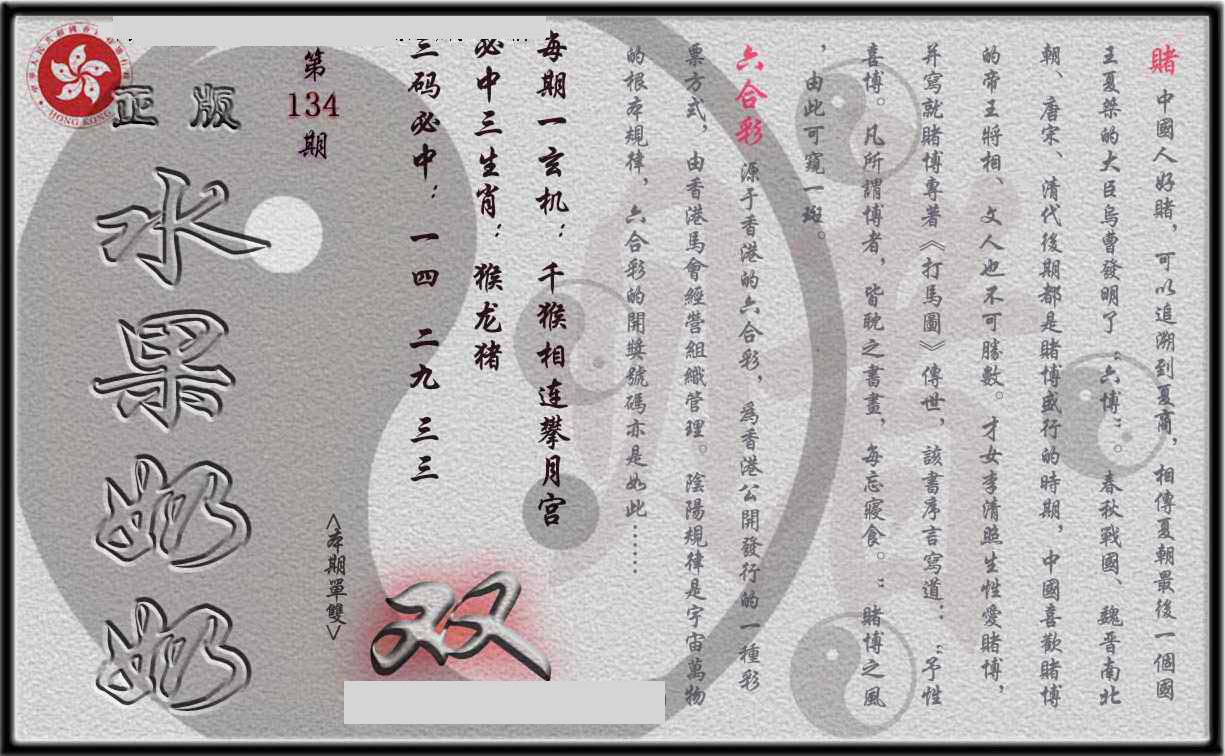 賭 中國人好賭，可以追溯到夏商，相傳夏朝最後一個國
王夏桀的大臣烏曹發明了“六博”。春秋戰國、魏晋南北
朝、唐宋、清代後期都是賭博盛行的時期，中國喜歡賭博
的帝王將相、文人也不可勝數。才女李清照生性愛賭博，
并寫就賭博專著《打馬圖》傳世，該書序言寫道：“予性
喜博。凡所謂博者，皆耽之書畫，每忘寢食。”賭博之風
，由此可窺一斑。
六合彩 源于香港的六合彩，爲香港公開發行的一種彩
票方式，由香港馬會經營組織管理。陰陽規律是宇宙萬物
的根本規律，六合彩的開獎號碼亦是如此……
每期一玄机：千猴相连攀月宫
必中三生肖：猴龙猪
三码必中：一四 二九 三三
第
134
期
<本期單雙>
双
正版
水果奶奶
HONG KONG